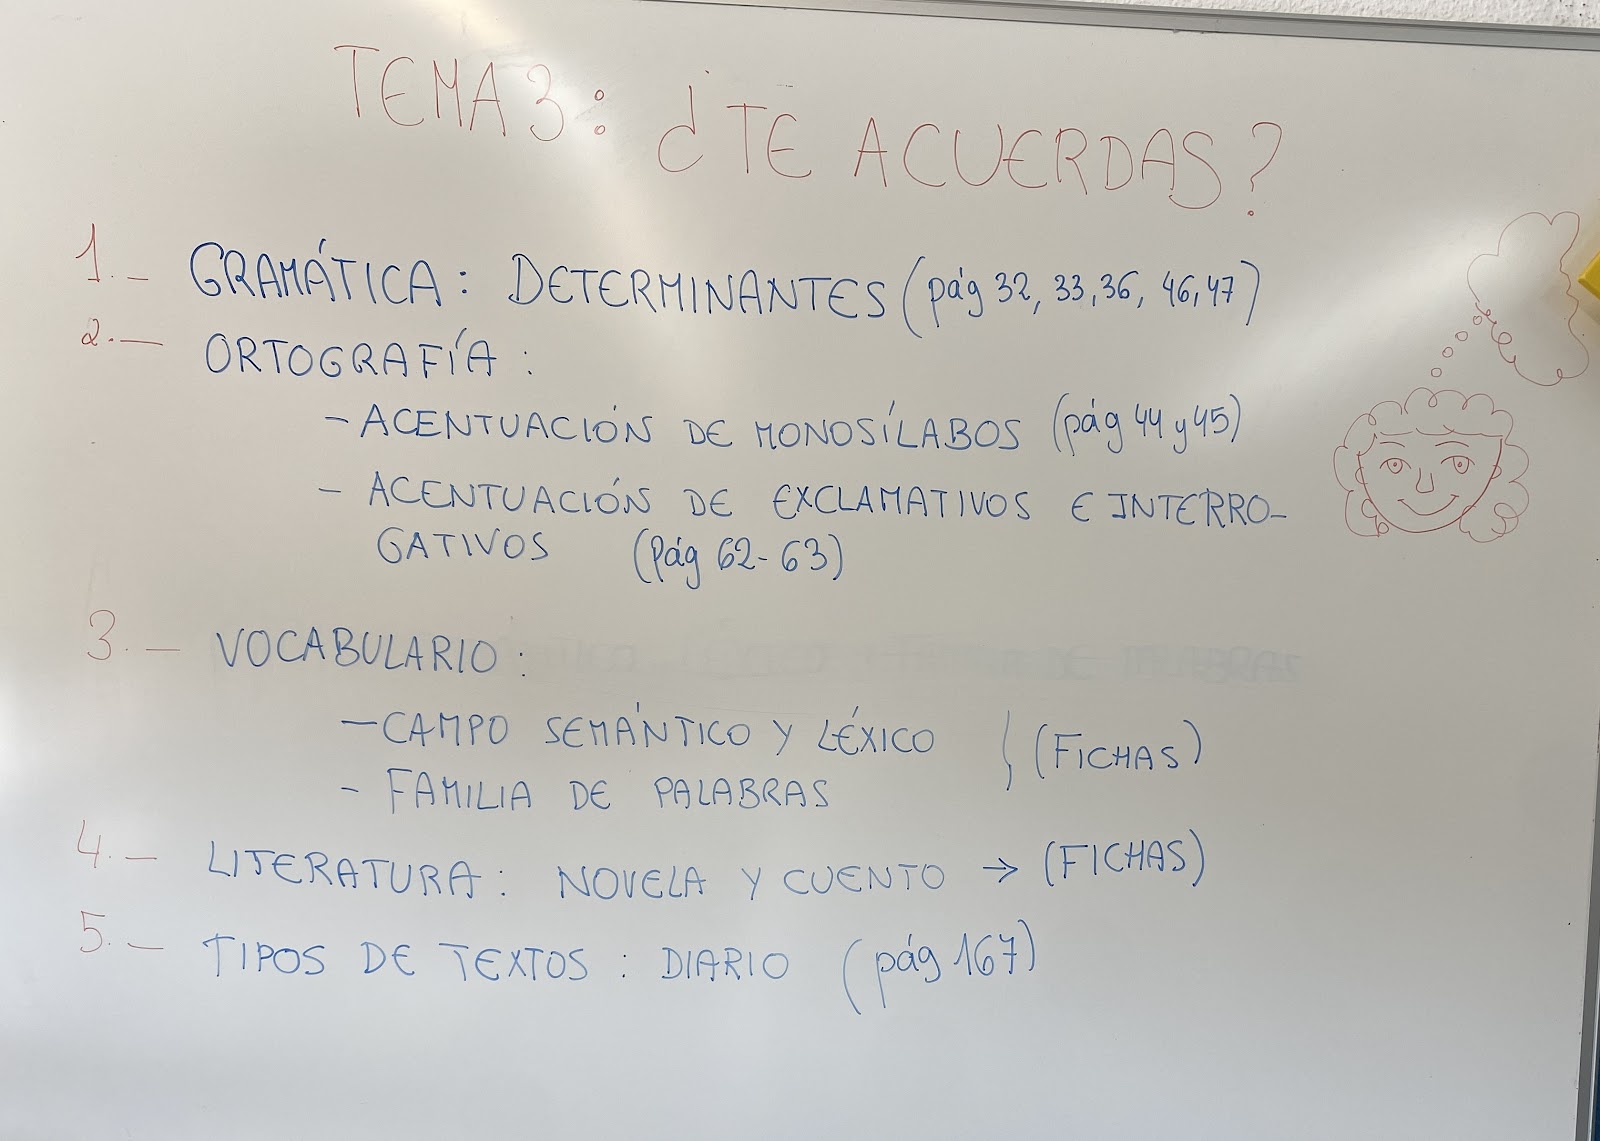 TEMA 3: ¿TE ACUERDAS?
1.- GRAMÁTICA: DETERMINANTES (pág 32, 33, 36, 46, 47)
2.- ORTOGRAFÍA:
- ACENTUACIÓN DE MONOSÍLABOS (pág 44 y 45)
- ACENTUACIÓN DE EXCLAMATIVOS E INTERRO-
GATIVOS (pág 62-63)
3.- VOCABULARIO:
- CAMPO SEMÁNTICO Y LÉXICO } (FICHAS)
- FAMILIA DE PALABRAS
4.- LITERATURA: NOVELA Y CUENTO → (FICHAS)
5.- TIPOS DE TEXTOS: DIARIO (pág 167)